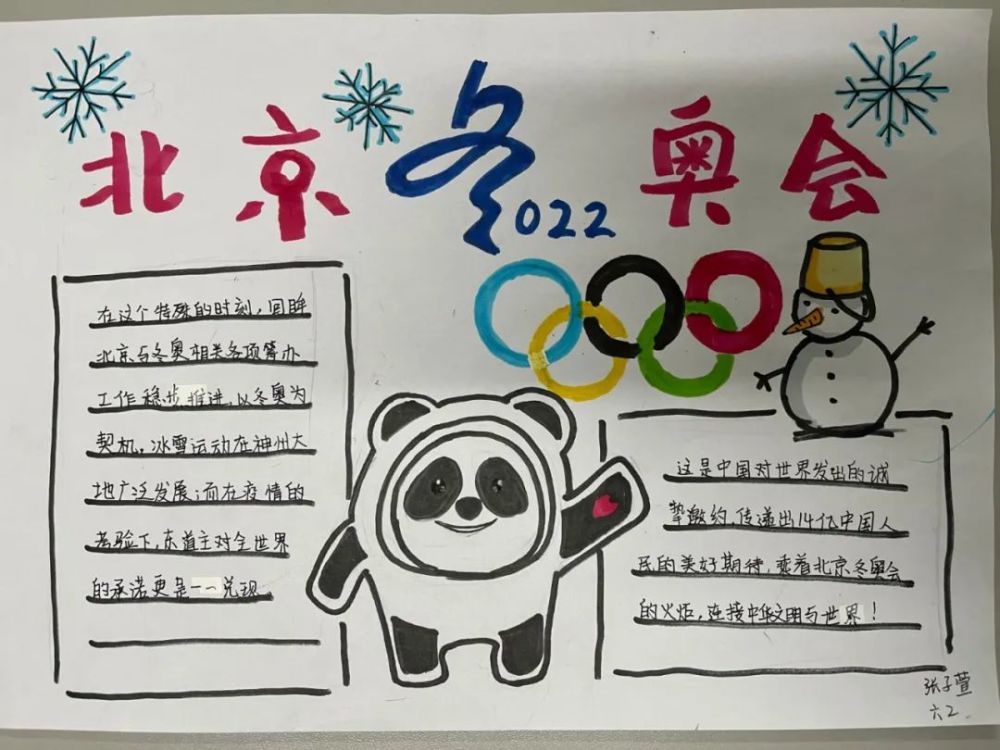 北京冬奥会
2022
在这个特殊的时刻,回眸
北京与冬奥相关各项筹办
工作稳步推进,以冬奥为
契机,冰雪运动在神州大
地广泛发展;而在疫情的
考验下,东道主对全世界
的承诺更是一一兑现。
这是中国对世界发出的诚
挚邀约,传递出14亿中国人
民的美好期待,乘着北京冬奥会
的火炬,连接中华文明与世界!
张子萱
六2.